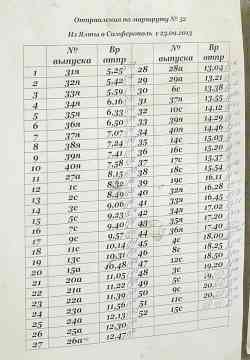 Отправления по маршруту № 52
Из Ялты в Симферополь с 23.09.2013
№ выпуска Вр отпр № выпуска Вр отпр
1 31я 5,25 28 28я 13,04
2 32я 5,42 29 29я 13,21
3 33я 5,59 30 6с 13,38
4 34я 6,16 31 37я 13,55
5 35я 6,33 32 10с 14,12
6 36я 6,50 33 39я 14,29
7 37я 7,07 34 40я 14,46
8 38я 7,24 35 14с 15,03
9 39я 7,41 36 16с 15,20
10 40я 7,58 37 17с 15,37
11 27а 8,15 38 18с 15,54
12 1с 8,32 39 19с 16,11
13 2с 8,49 40 32я 16,28
14 3с 9,06 41 33я 16,45
15 5с 9,23 42 34я 17,02
16 7с 9,40 43 35я 17,20
17 9с 9,57 44 36я 17,40
18 11с 10,14 45 4с 18,00
19 13с 10,31 46 8с 18,25
20 15а 10,48 47 12с 18,50
21 20а 11,05 48 3с 19,20
22 21а 11,22 49 5с
23 22а 11,39 50 9с
24 23а 11,56 51 11с
25 24а 12,13 52 15с
26 25а 12,30
27 26а 12,47